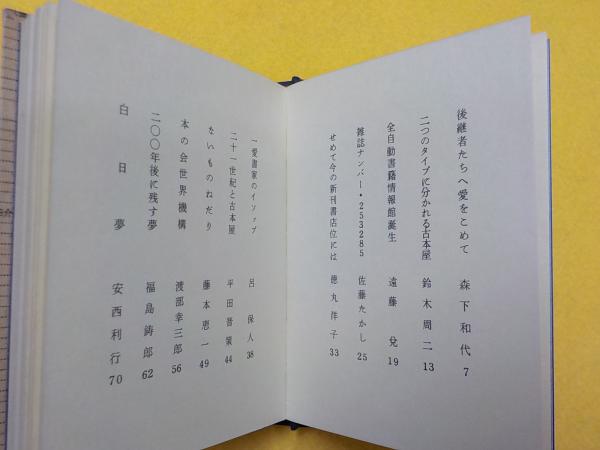 後継者たちへ愛をこめて 森下和代 7
二つのタイプに分かれる古本屋 鈴木周二 13
全自動書籍情報館誕生 遠藤 兌 19
雑誌ナンバー・253285 佐藤たかし 25
せめて今の新刊書店位には 徳丸洋子 33
一愛書家のイソップ 呂 保人 38
二十一世紀と古本屋 平田晋策 44
ないものねだり 藤本恵一 49
本の会世界機構 渡部幸三郎 56
二〇〇年後に残す夢 福島鋳郎 62
白日夢 安西利行 70